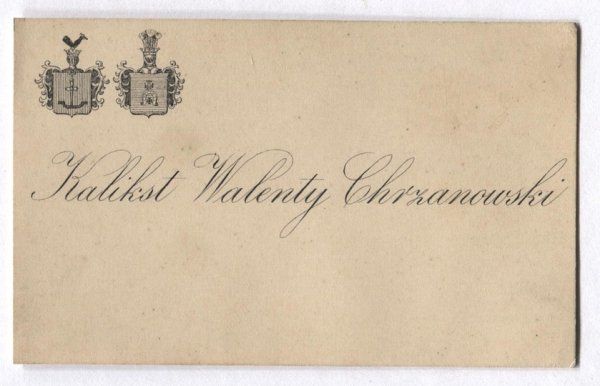 Kalikst Walenty Chrzanowski